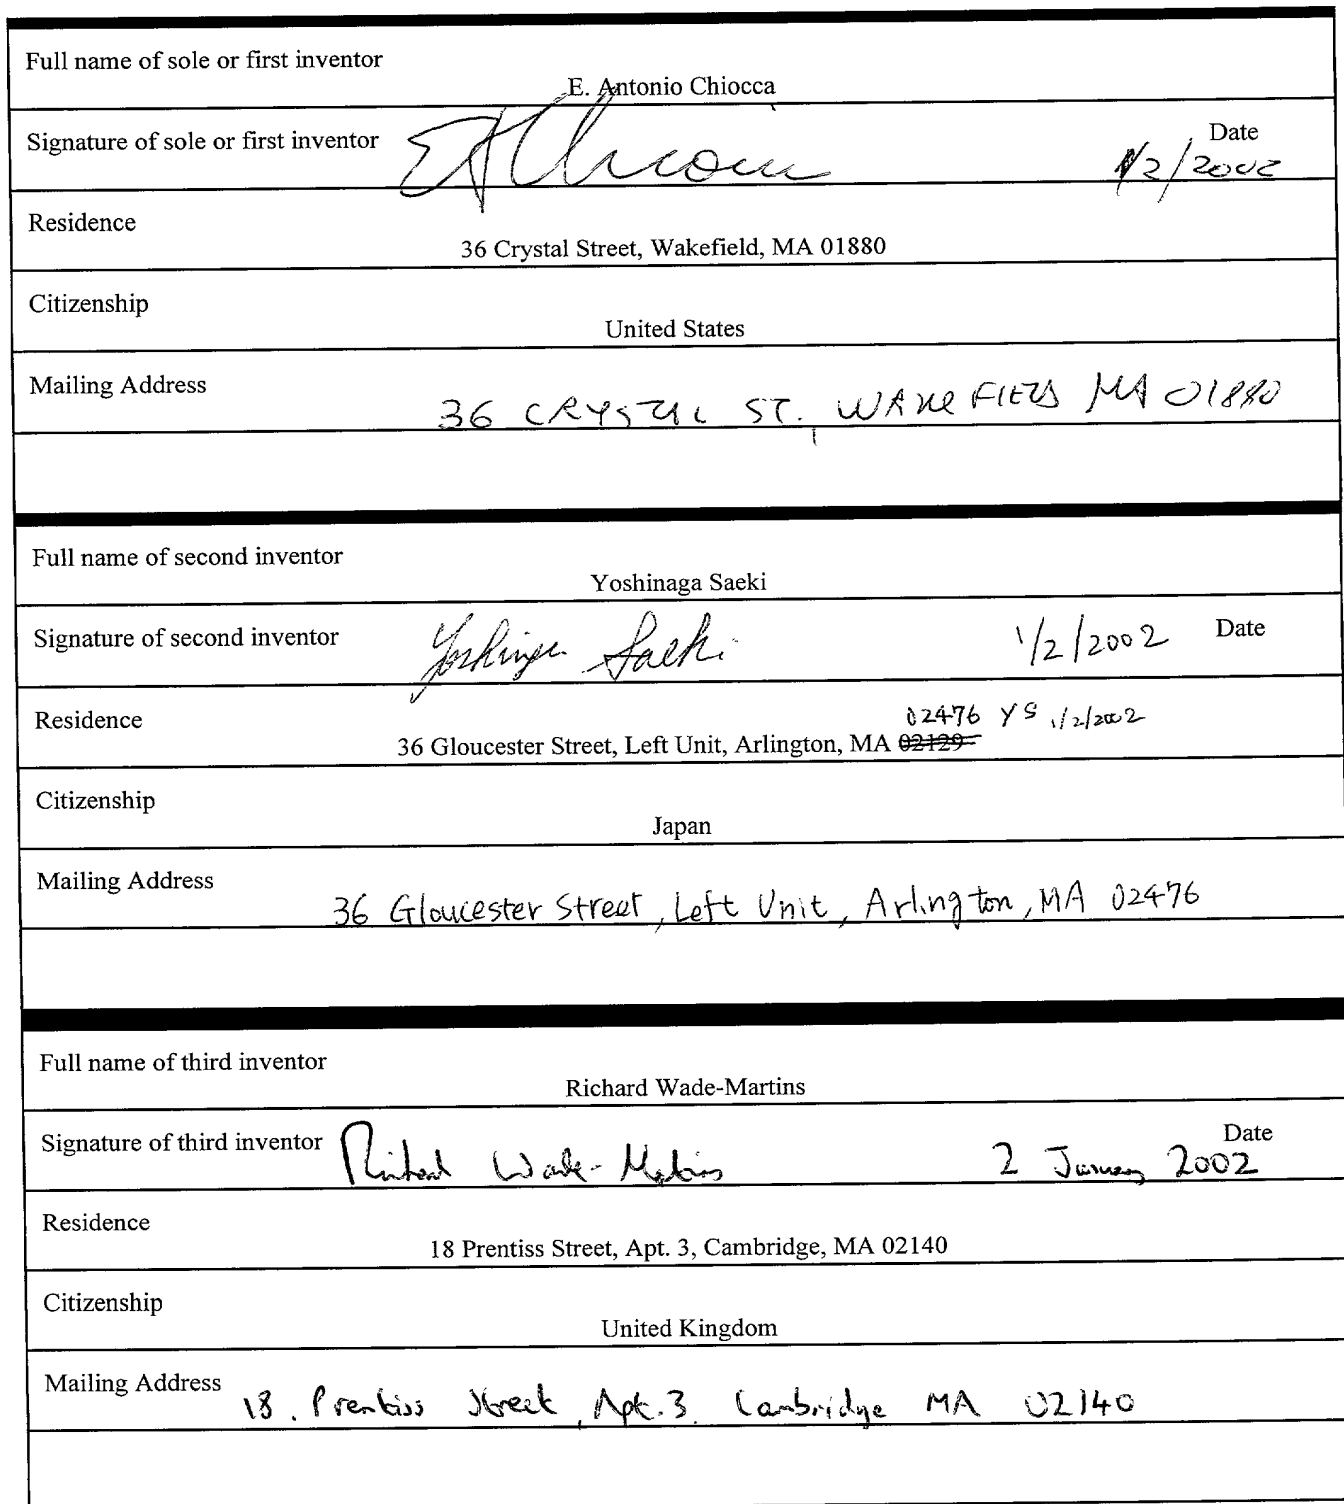 Full name of sole or first inventor
E. Antonio Chiocca
Signature of sole or first inventor
Date
1/2/2002
Residence
36 Crystal Street, Wakefield, MA 01880
Citizenship
United States
Mailing Address
36 CRYSTAL ST., WAKEFIELD MA 01880
Full name of second inventor
Yoshinaga Saeki
Signature of second inventor Yoshinaga Saeki 1/2/2002 Date
Residence
02476 YS 1/2/2002
36 Gloucester Street, Left Unit, Arlington, MA 02129
Citizenship
Japan
Mailing Address
36 Gloucester Street, Left Unit, Arlington, MA 02476
Full name of third inventor
Richard Wade-Martins
Signature of third inventor Richard Wade-Martins 2 January 2002 Date
Residence
18 Prentiss Street, Apt. 3, Cambridge, MA 02140
Citizenship
United Kingdom
Mailing Address
18. Prentiss Street, Apt. 3. Cambridge MA 02140